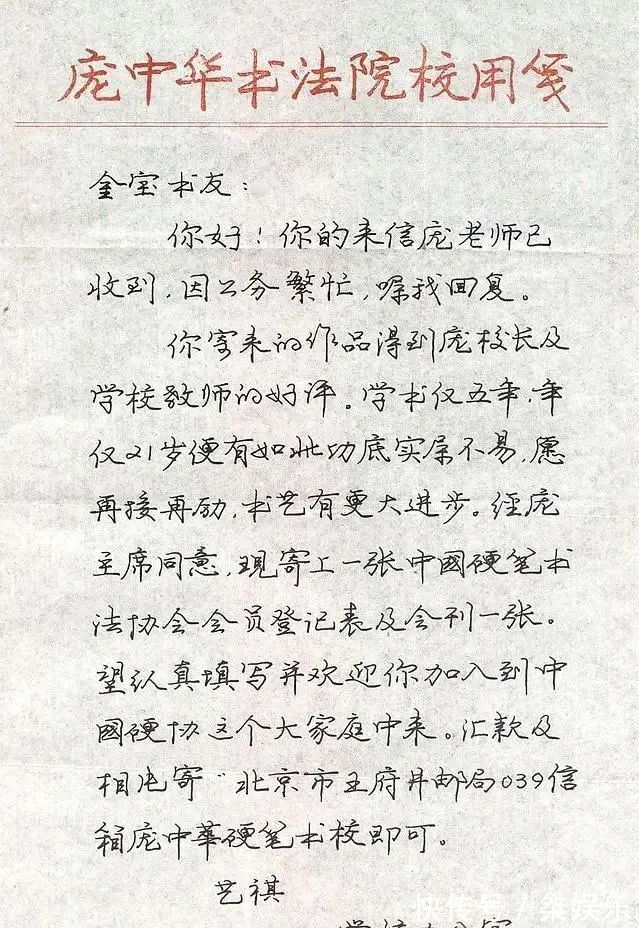 庞中华书法院校用笺
金宝书友：
你好！你的来信庞老师已
收到，因公务繁忙，嘱我回复。
你寄来的作品得到庞校长及
学校教师的好评。学书仅五年，年
仅21岁便有如此功底实属不易，愿
再接再励，书艺有更大进步。经庞
主席同意，现寄上一张中國硬笔书
法协会会员登记表及会刊一张。
望认真填写并欢迎你加入到中
國硬协这个大家庭中来。汇款及
相片寄"北京市王府井邮局039信
箱庞中華硬笔书校即可。
艺祺